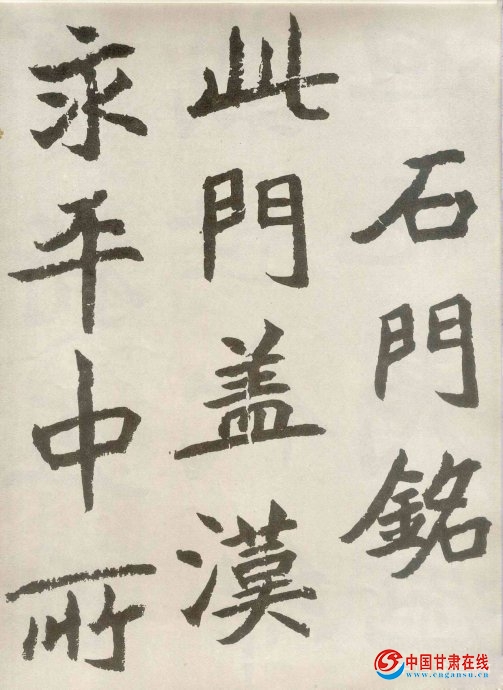 石門銘
此門盖漢
永平中所
中国甘肃在线
www.cngansu.cn